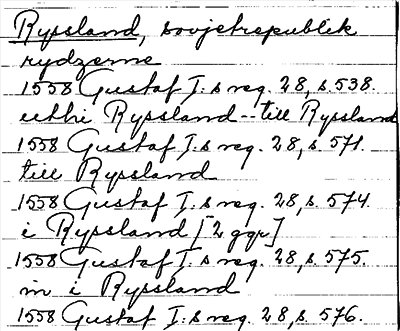 Ryssland, sovjetrepublik
rydzerne
1558 Gustaf I:s reg. 28, s. 538.
uthi Ryssland -- till Ryssland
1558 Gustaf I:s reg. 28, s. 571.
till Ryssland
1558 Gustaf I:s reg. 28, s. 574.
i Ryssland [2 ggr]
1558 Gustaf I:s reg. 28, s. 575.
in i Ryssland
1558 Gustaf I:s reg. 28, s. 576.